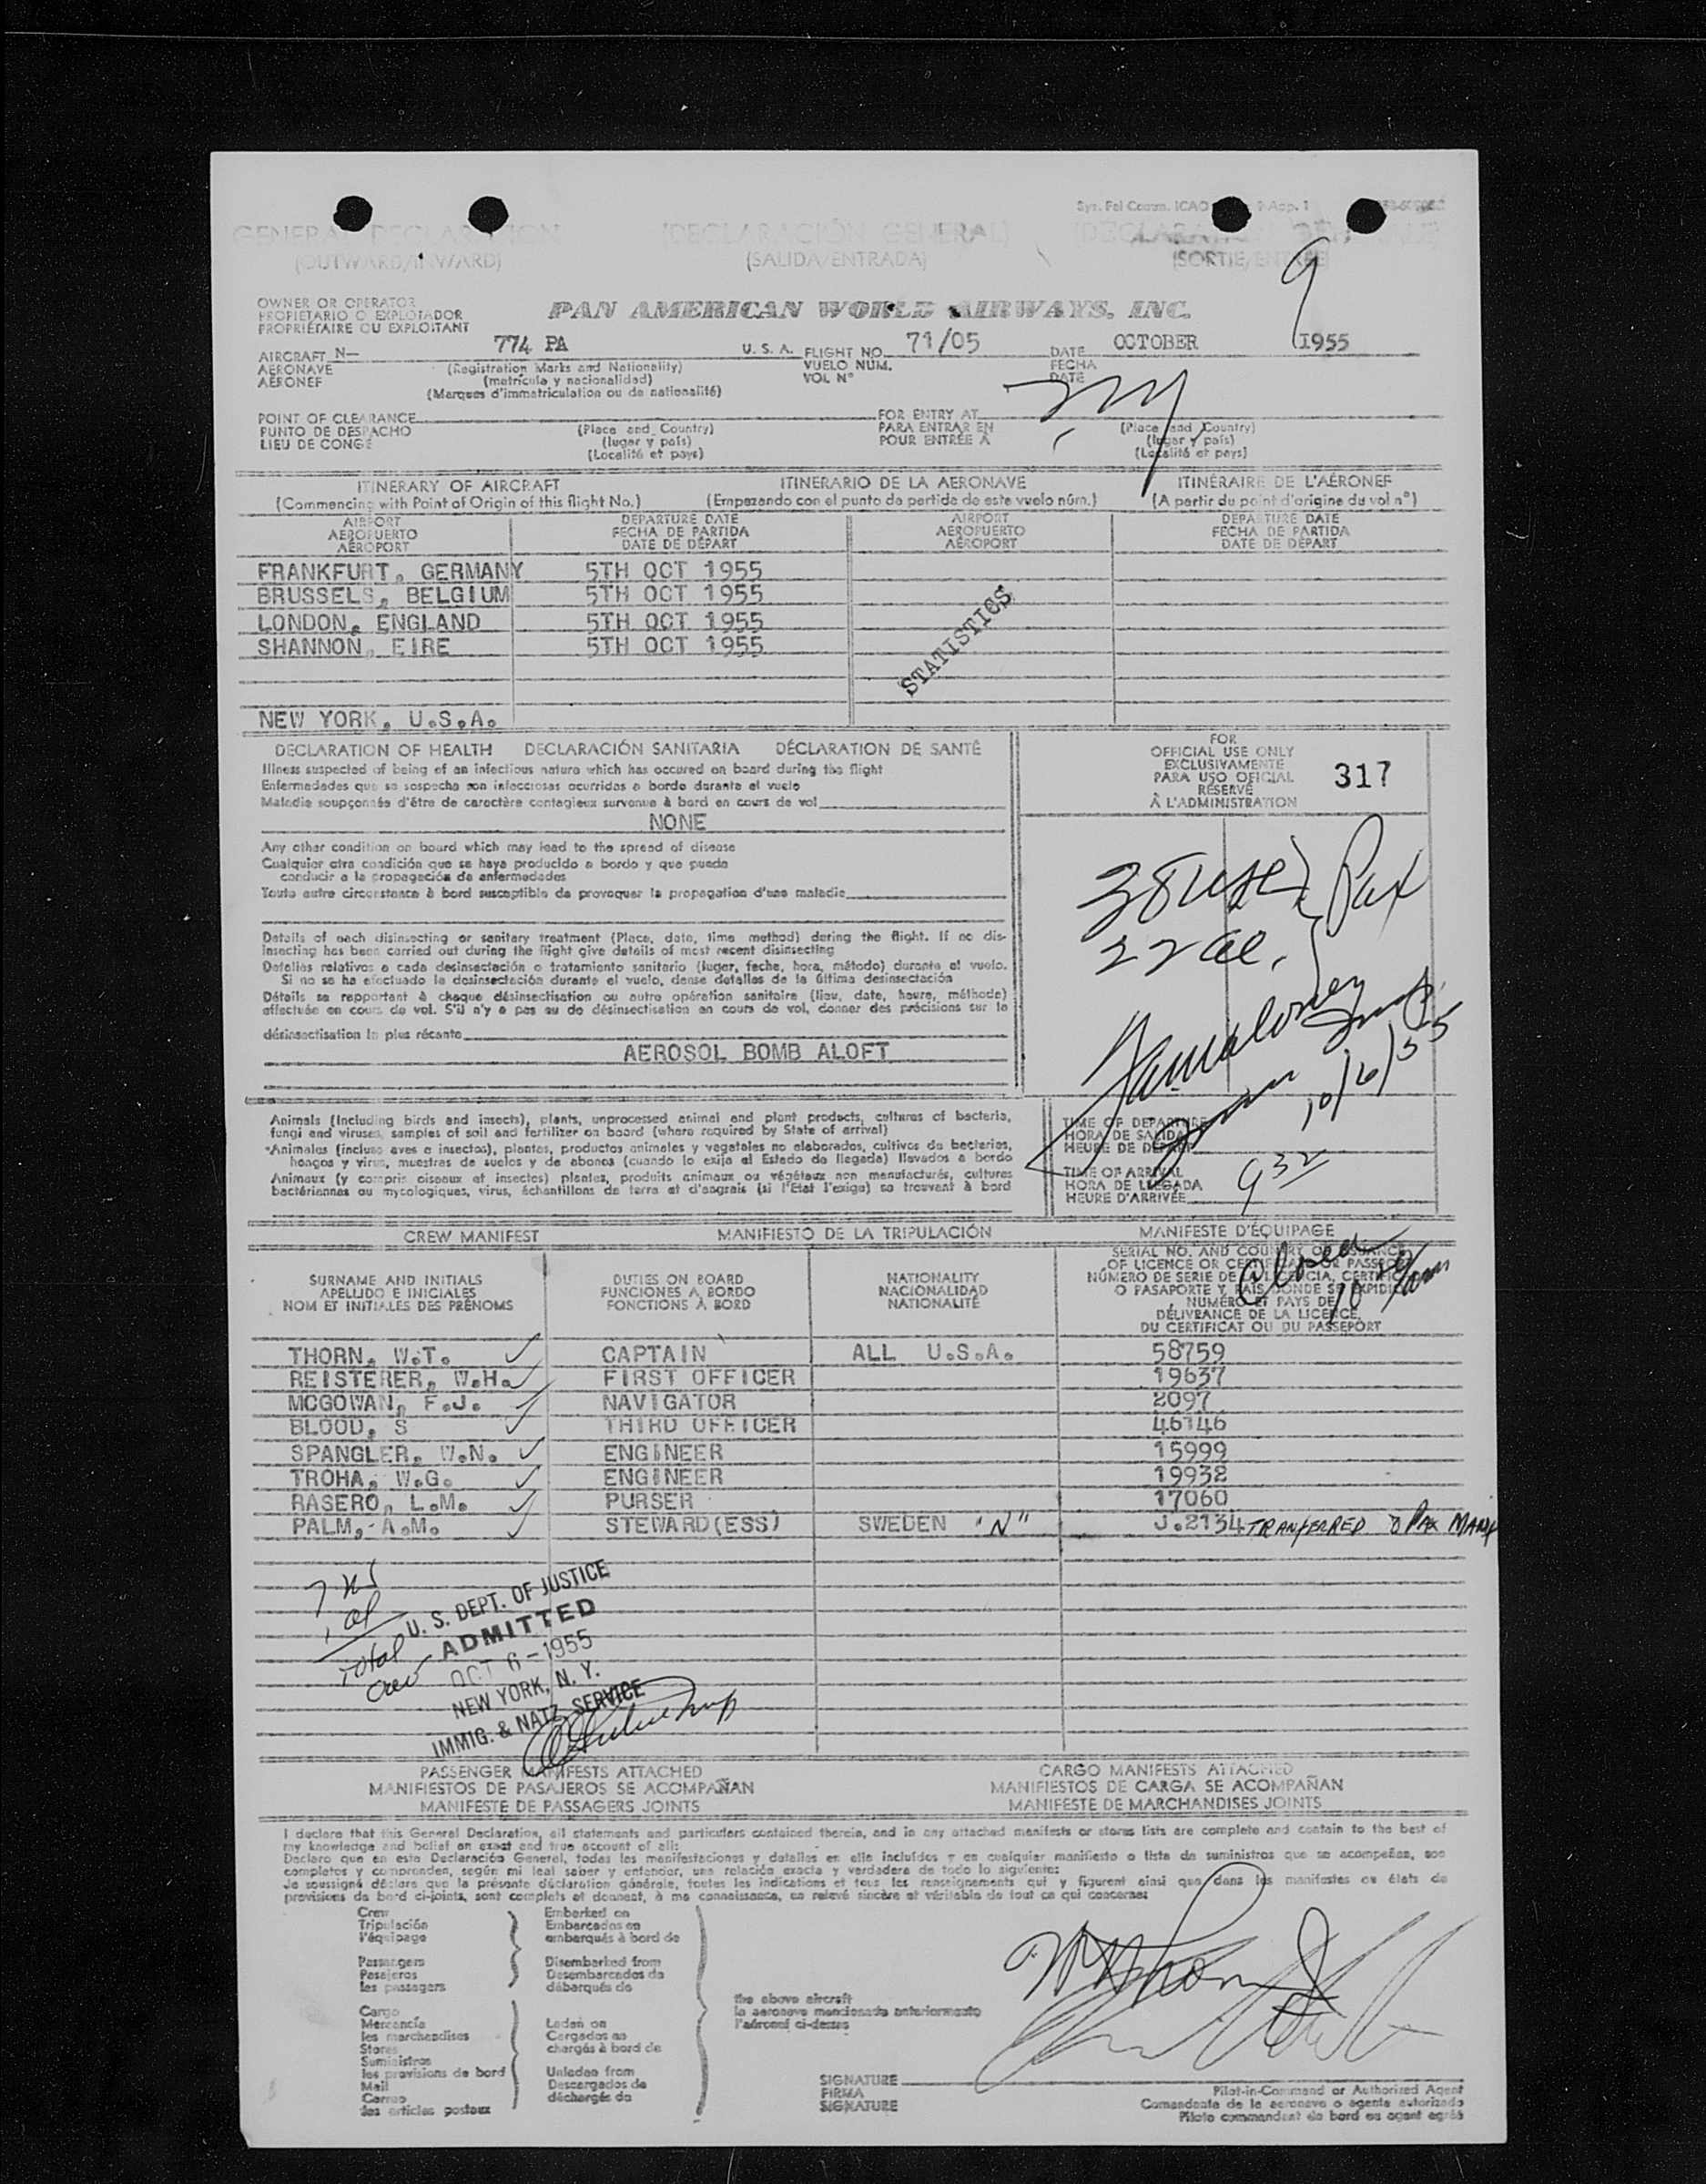 Sys. Fal Comm. ICAO 9-App. 1
GENERAL DECLARATION (DECLARACIÓN GENERAL)
(OUTWARD/INWARD) (SALIDA/ENTRADA) (SORTIE/ENTRÉE)
9
OWNER OR OPERATOR
PROPIETARIO O EXPLOTADOR
PROPRIÉTAIRE OU EXPLOITANT
PAN AMERICAN WORLD AIRWAYS, INC.
AIRCRAFT N— 774 PA U. S. A. FLIGHT NO. 71/05 DATE OCTOBER 1955
AERONAVE (Registration Marks and Nationality) VUELO NUM. FECHA
AÉRONEF (matrícula y nacionalidad) VOL N° DATE
(Marques d'immatriculation ou de nationalité)
POINT OF CLEARANCE FOR ENTRY AT NY
PUNTO DE DESPACHO (Place and Country) PARA ENTRAR EN (Place and Country)
LIEU DE CONGÉ (lugar y país) POUR ENTRÉE À (lugar y país)
(Localité et pays) (Localité et pays)
ITINERARY OF AIRCRAFT ITINERARIO DE LA AERONAVE ITINÉRAIRE DE L'AÉRONEF
(Commencing with Point of Origin of this flight No.) (Empezando con el punto de partida de este vuelo núm.) (A partir du point d'origine du vol n°)
AIRPORT DEPARTURE DATE AIRPORT DEPARTURE DATE
AEROPUERTO FECHA DE PARTIDA AEROPUERTO FECHA DE PARTIDA
AÉROPORT DATE DE DÉPART AÉROPORT DATE DE DÉPART
FRANKFURT, GERMANY 5TH OCT 1955
BRUSSELS, BELGIUM 5TH OCT 1955
LONDON, ENGLAND 5TH OCT 1955
SHANNON, EIRE 5TH OCT 1955
STATISTICS
NEW YORK, U.S.A.
DECLARATION OF HEALTH DECLARACIÓN SANITARIA DÉCLARATION DE SANTÉ
Illness suspected of being of an infectious nature which has occured on board during the flight
Enfermedades que se sospecha son infecciosas ocurridas a bordo durante el vuelo
Maladie soupçonnée d'être de caractère contagieux survenue à bord en cours de vol
NONE
FOR
OFFICIAL USE ONLY
EXCLUSIVAMENTE
PARA USO OFICIAL
RÉSERVÉ
À L'ADMINISTRATION
317
Any other condition on board which may lead to the spread of disease
Cualquier otra condición que se haya producido a bordo y que pueda
conducir a la propagación de enfermedades
Toute autre circonstance à bord susceptible de provoquer la propagation d'une maladie
38 USC } Pax
22 al.
Details of each disinsecting or sanitary treatment (Place, date, time method) during the flight. If no dis-
insecting has been carried out during the flight give details of most recent disinsecting
Detalles relativos a cada desinsectación o tratamiento sanitario (lugar, fecha, hora, método) durante el vuelo.
Si no se ha efectuado la desinsectación durante el vuelo, dense detalles de la última desinsectación
Détails se rapportant à chaque désinsectisation ou autre opération sanitaire (lieu, date, heure, méthode)
effectuée en cours de vol. S'il n'y a pas eu de désinsectisation en cours de vol, donner des précisions sur la
désinsectisation la plus récente
AEROSOL BOMB ALOFT
10/6/55
Animals (Including birds and insects), plants, unprocessed animal and plant products, cultures of bacteria,
fungi and viruses, samples of soil and fertilizer on board (where required by State of arrival)
Animales (incluso aves e insectos), plantas, productos animales y vegetales no elaborados, cultivos de bacterias,
hongos y virus, muestras de suelos y de abonos (cuando lo exija el Estado de llegada) llevados a bordo
Animaux (y compris oiseaux et insectes) plantes, produits animaux ou végétaux non manufacturés, cultures
bactériennes ou mycologiques, virus, échantillons de terre et d'engrais (si l'État l'exige) se trouvant à bord
TIME OF DEPARTURE
HORA DE SALIDA
HEURE DE DÉPART
TIME OF ARRIVAL
HORA DE LLEGADA 932
HEURE D'ARRIVÉE
CREW MANIFEST MANIFIESTO DE LA TRIPULACIÓN MANIFESTE D'ÉQUIPAGE
SURNAME AND INITIALS
APELLIDO E INICIALES
NOM ET INITIALES DES PRÉNOMS
DUTIES ON BOARD
FUNCIONES A BORDO
FONCTIONS À BORD
NATIONALITY
NACIONALIDAD
NATIONALITÉ
SERIAL NO. AND COUNTRY OF ISSUANCE
OF LICENCE OR CERTIFICATE OR PASSPORT
NÚMERO DE SERIE DE LA LICENCIA, CERTIFICADO
O PASAPORTE Y PAÍS DONDE SE EXPIDIÓ
NUMÉRO ET PAYS DE
DÉLIVRANCE DE LA LICENCE,
DU CERTIFICAT OU DU PASSEPORT
Closed
THORN, W.T. CAPTAIN ALL U.S.A. 58759
REISTERER, W.H. FIRST OFFICER 19637
MCGOWAN, F.J. NAVIGATOR 2097
BLOOD, S THIRD OFFICER 46146
SPANGLER, W.N. ENGINEER 15999
TROHA, W.G. ENGINEER 19932
RASERO, L.M. PURSER 17060
PALM, A.M. STEWARD(ESS) SWEDEN "N" J.2134 TRANFERRED TO PAX MANIF
7 US
1 al
Total
crew
U. S. DEPT. OF JUSTICE
ADMITTED
OCT 6-1955
NEW YORK, N. Y.
IMMIG. & NATZ. SERVICE
PASSENGER MANIFESTS ATTACHED CARGO MANIFESTS ATTACHED
MANIFIESTOS DE PASAJEROS SE ACOMPAÑAN MANIFIESTOS DE CARGA SE ACOMPAÑAN
MANIFESTE DE PASSAGERS JOINTS MANIFESTE DE MARCHANDISES JOINTS
I declare that this General Declaration, all statements and particulars contained therein, and in any attached manifests or stores lists are complete and contain to the best of
my knowledge and belief an exact and true account of all:
Declaro que en esta Declaración General, todas las manifestaciones y detalles en ella incluídos y en cualquier manifiesto o lista de suministros que se acompañan, son
completos y comprenden, según mi leal saber y entender, una relación exacta y verdadera de todo lo siguiente:
Je soussigné déclare que la présente déclaration générale, toutes les indications et tous les renseignements qui y figurent ainsi que dans les manifestes ou états de
provisions de bord ci-joints, sont complets et donnent, à ma connaissance, un relevé sincère et véritable de tout ce qui concerne:
Crew Embarked on
Tripulación Embarcados en
l'équipage embarqués à bord de
Passengers Disembarked from
Pasajeros Desembarcados de
les passagers débarqués de
the above aircraft
la aeronave mencionada anteriormente
l'aéronef ci-dessus
Cargo
Mercancía Laden on
les marchandises Cargados en
Stores chargés à bord de
Suministros
les provisions de bord Unladen from
Mail Descargados de
Correo déchargés de
les articles postaux
SIGNATURE
FIRMA
SIGNATURE
Pilot-in-Command or Authorized Agent
Comandante de la aeronave o agente autorizado
Pilote commandant de bord ou agent agréé